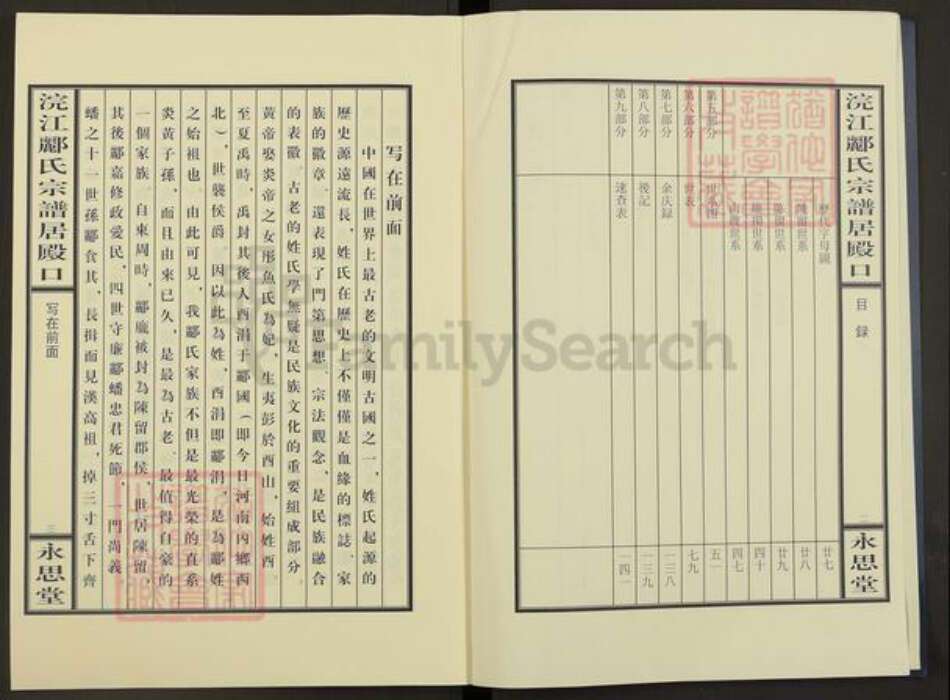 浣江酈氏宗譜居殿口
目录
二
永思堂
歷代字母圖
廿七
廿八
廿九
四十
山陰世系
四七
第五部分
世系四
五一
第六部分
世表
七九
第七部分
余庆录
一三八
第八部分
後記
一三九
第九部分
速查表
一四一
写在前面
中國在世界上最古老的文明古國之一，姓氏起源的
歷史源遠流長，姓氏在歷史上不僅僅是血緣的標誌、家
族的徽章，還表現了門第思想、宗法觀念、是民族融合
的表徽。古老的姓氏學無疑是民族文化的重要組成部分
黃帝娶炎帝之女彤魚氏為妃，生夷彭於西山，始姓酉
至夏禹時，禹封其後人酉涓于酈國（即今日河南內鄉西
北），世襲侯爵，因以此為姓，酉涓即酈涓，是為酈姓
之始祖也。由此可見，我酈氏家族不但是最光榮的直系
炎黃子孫，而且由來已久，是最為古老、最值得自豪的
一個家族。自東周時，酈廐被封為陳留郡侯，世居陳留，
其後酈嘉修政愛民，四世守廉酈蟠忠君死節，一門尚義
蟠之十一世孫酈食其，長揖而見漢高祖，掉三寸舌下齊
浣江酈氏宗譜居殿口
写在前面
三
永思堂
FamilySearch